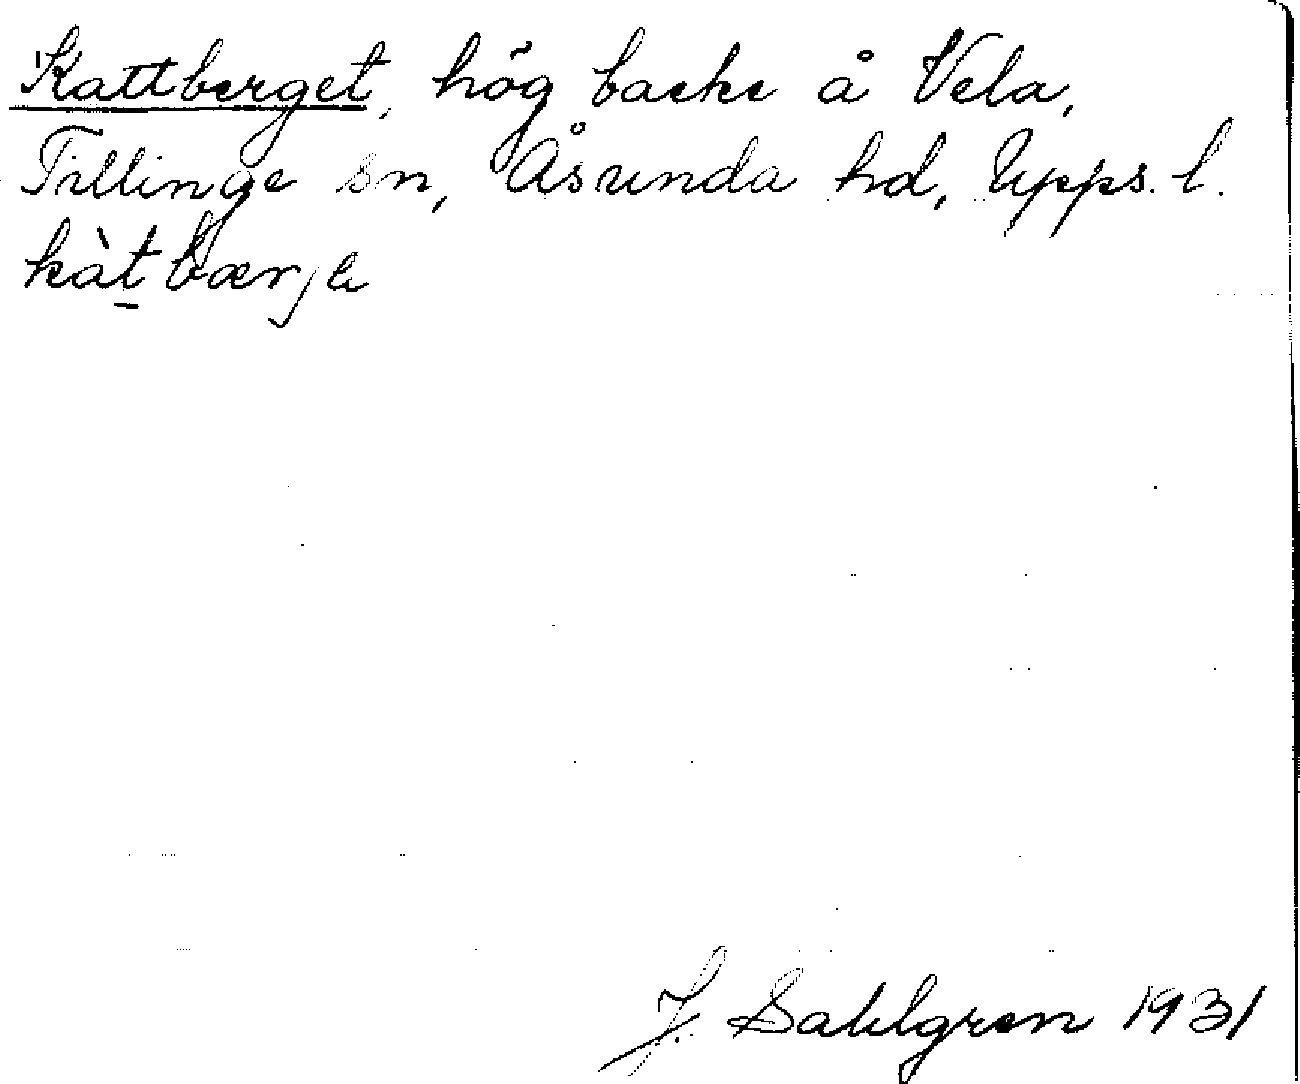 Kattberget, hög backe å Vela,
Tillinge sn, Åsunda hd, Upps. l.
kàt bærje
J. Sahlgren 1931